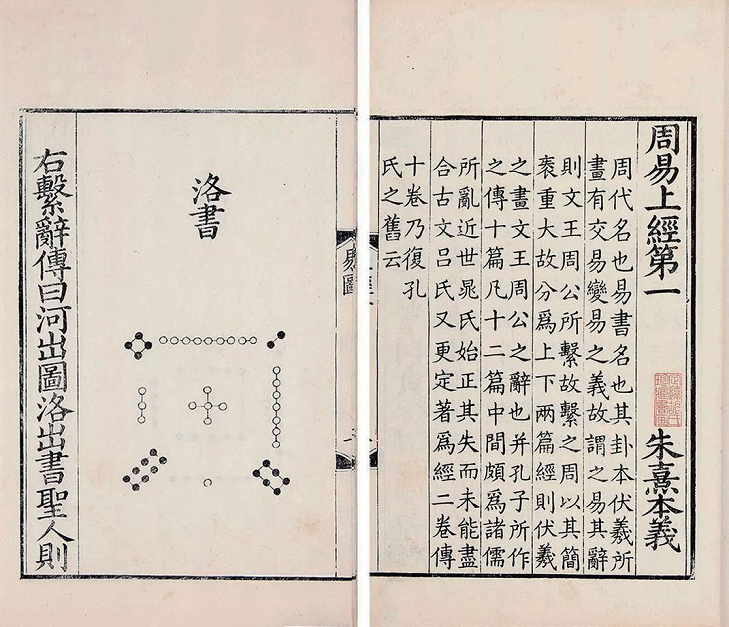 周易上經第一
朱熹本義
周代名也易書名也其卦本伏羲所
畫有交易變易之義故謂之易其辭
則文王周公所繫故繫之周以其簡
袠重大故分爲上下兩篇經則伏羲
之畫文王周公之辭也并孔子所作
之傳十篇凡十二篇中間頗爲諸儒
所亂近世晁氏始正其失而未能盡
合古文呂氏又更定著爲經二卷傳
十卷乃復孔
氏之舊云
易圖
洛書
右繫辭傳曰河出圖洛出書聖人則